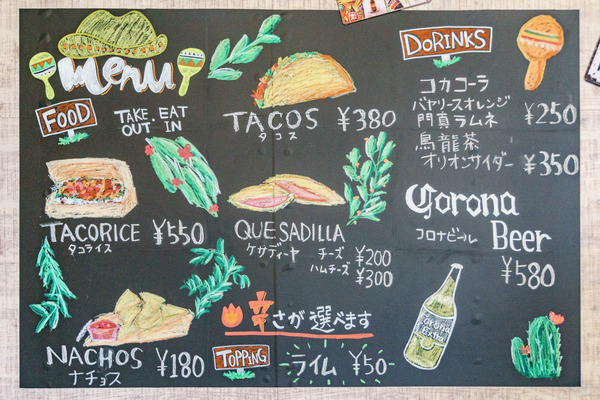 Menu
FOOD
TAKE OUT
EAT IN
TACOS ¥380
タコス
TACORICE ¥550
タコライス
QUESADILLA
ケサディーヤ チーズ ¥200
ハムチーズ ¥300
NACHOS ¥180
ナチョス
辛さが選べます
TOPPING
ライム ¥50
DORINKS
コカコーラ
バヤリースオレンジ
門真ラムネ ¥250
烏龍茶
オリオンサイダー ¥350
Corona Beer
コロナビール
¥580
Corona
Extra